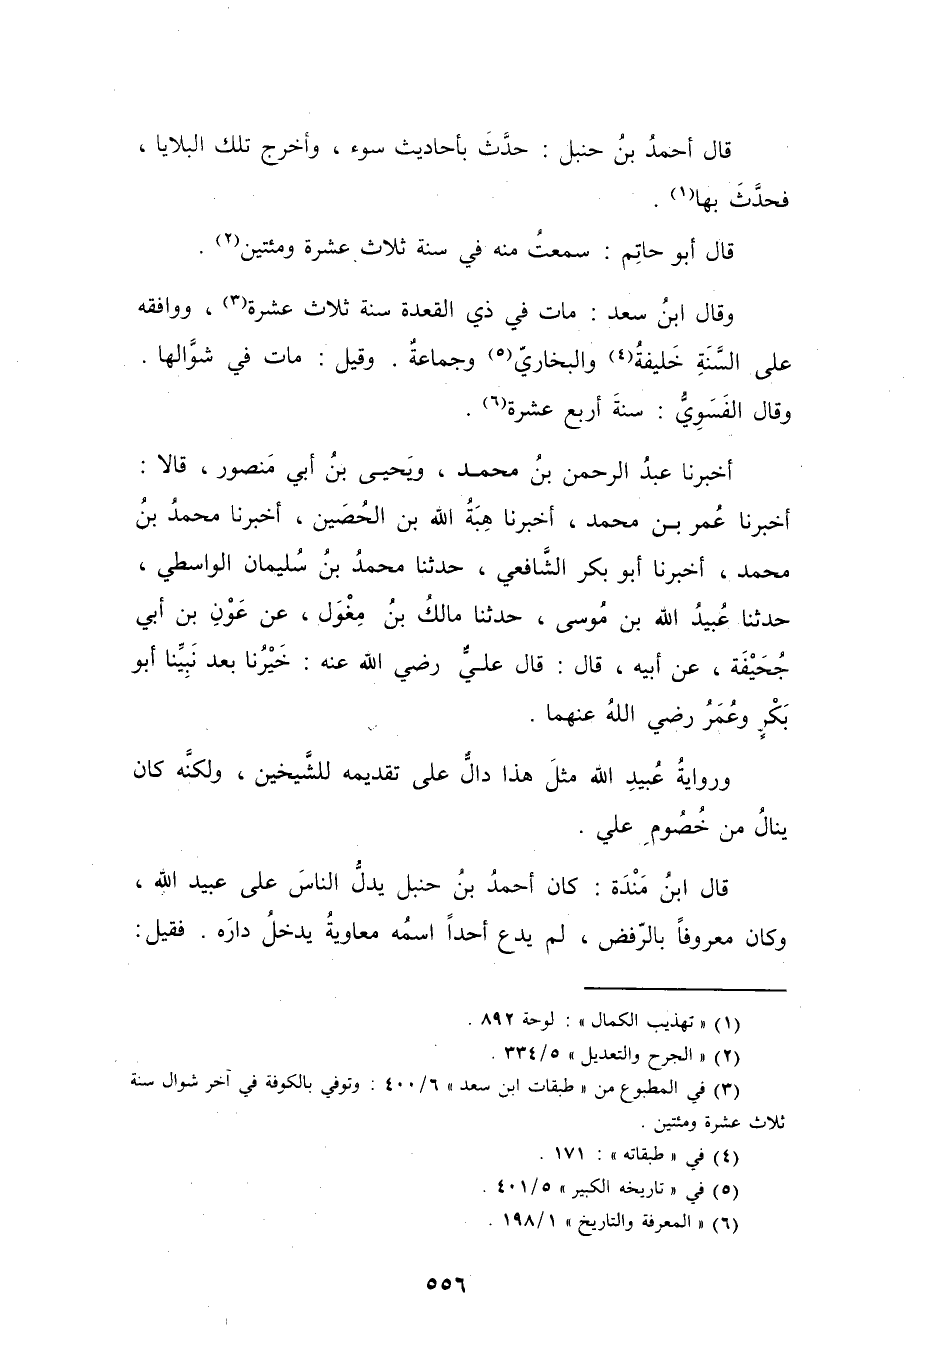 قال أحمدُ بنُ حنبل : حدَّثَ بأحاديث سوء ، وأخرج تلك البلايا ،
فحدَّثَ بها(١) .
قال أبو حاتِم : سمعتُ منه في سنة ثلاث عشرة ومئتين(٢) .
وقال ابنُ سعد : مات في ذي القعدة سنة ثلاث عشرة(٣) ، ووافقه
على السَّنَةِ خَليفةُ(٤) والبخاريّ(٥) وجماعةٌ . وقيل : مات في شوَّالها .
وقال الفَسَوِيُّ : سنةَ أربع عشرة(٦) .
أخبرنا عبدُ الرحمن بنُ محمد ، ويَحيى بنُ أبي مَنصور ، قالا :
أخبرنا عُمر بن محمد ، أخبرنا هِبَةُ الله بن الحُصَين ، أخبرنا محمدُ بنُ
محمد ، أخبرنا أبو بكر الشَّافعي ، حدثنا محمدُ بنُ سُليمان الواسطي ،
حدثنا عُبيدُ الله بن مُوسى ، حدثنا مالكُ بنُ مِغْوَل ، عن عَوْنِ بن أبي
جُحَيْفَة ، عن أبيه ، قال : قال عليٌّ رضي الله عنه : خَيْرُنا بعد نَبِيِّنا أبو
بَكْرٍ وعُمَرُ رضي اللهُ عنهما .
وروايةُ عُبيدِ الله مثلَ هذا دالٌّ على تقديمه للشَّيخين ، ولكنَّه كان
ينالُ من خُصُومِ علي .
قال ابنُ مَنْدَة : كان أحمدُ بنُ حنبل يدلُّ الناسَ على عبيد الله ،
وكان معروفاً بالرّفض ، لم يدع أحداً اسمُه معاويةُ يدخلُ دارَه . فقيل :
(١) « تهذيب الكمال » : لوحة ٨٩٢ .
(٢) « الجرح والتعديل » ٣٣٤/٥ .
(٣) في المطبوع من « طبقات ابن سعد » ٤٠٠/٦ : وتوفي بالكوفة في آخر شوال سنة
ثلاث عشرة ومئتين .
(٤) في « طبقاته » : ١٧١ .
(٥) في « تاريخه الكبير » ٤٠١/٥ .
(٦) « المعرفة والتاريخ » ١٩٨/١ .
٥٥٦